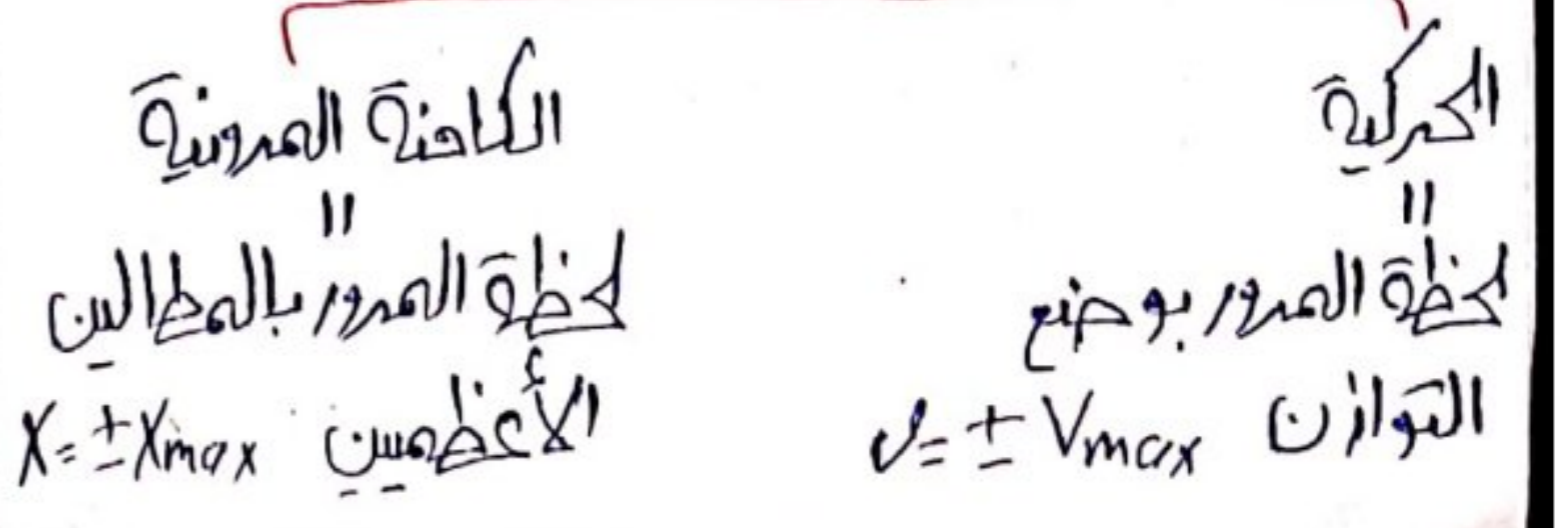 الحركية
"
لحظة المرور بوضع
التوازن v = ± Vmax
الكامنة المرونية
"
لحظة المرور بالمطالين
الأعظميين X = ± Xmax